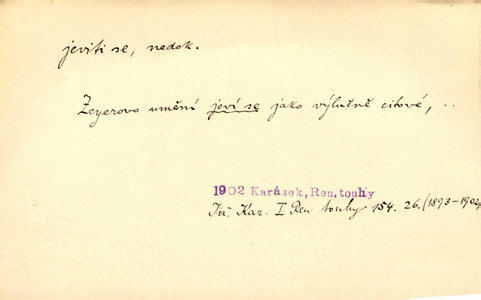 jeviti se, nedok.
Zeyerovo umění jeví se jako výlučně citové, ..
1902 Karásek, Ren. touhy
Jiř. Kar. I Ren touhy 154. 26. (1893–1902)